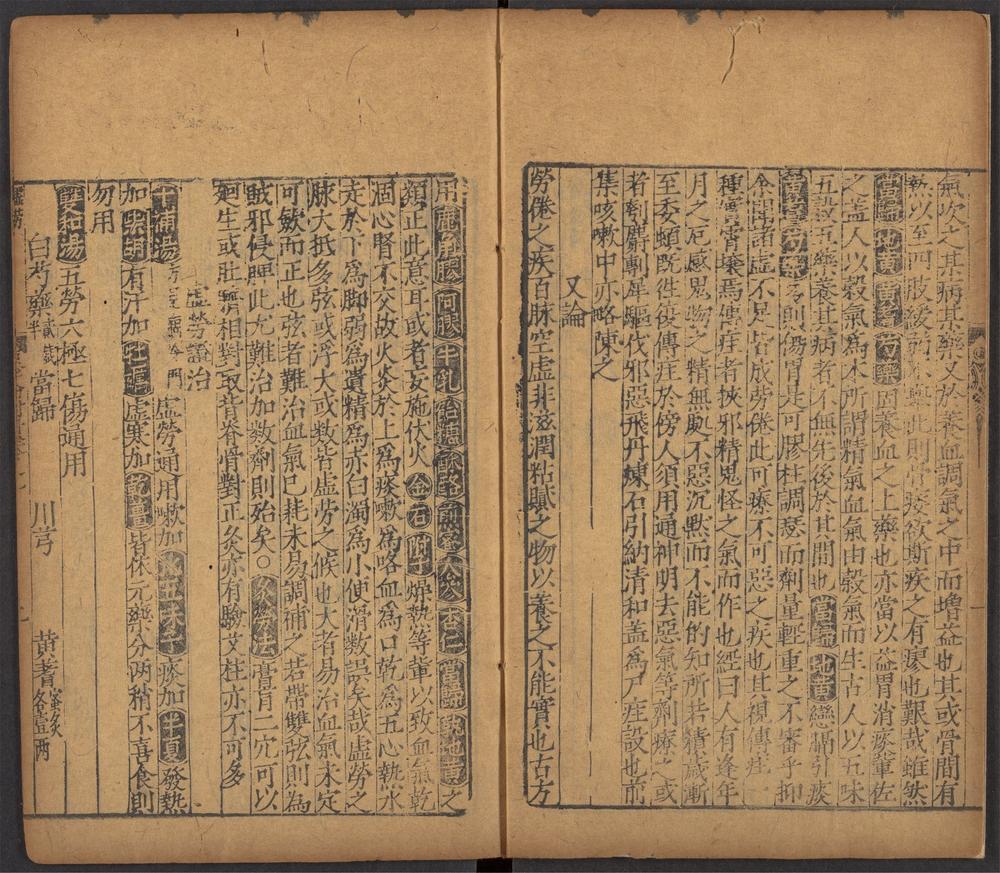 氣㕮之某病某藥又於養血調氣之中而增益也其或骨間有
熱以至四肢緩弱不則骨痿欲斯疾之有瘳也艱哉雖然
當歸地黃黃耆芍藥固養血之上藥也亦當以益胃消痰輩佐
之蓋人以穀氣為本所謂精氣血氣由穀氣而生古人以五味
五穀五藥養其病者不無先後於其間也當歸地黃戀膈引痰
黃耆芍藥則傷胃其可膠柱調瑟而劑量輕重之不審乎抑
余聞諸虛不足皆成勞倦此可療不可惡之疾也其視傳疰一
種實霄壤焉傳疰者挾邪精鬼怪之氣而作也經曰人有逢年
月之厄感鬼物之精無處不惡沉默而不能的知所苦積歲漸
至委頓既往復傳疰於傍人須用通神明去惡氣等劑療之或
者剉麝剸犀驅伐邪惡飛丹煉石引納清和蓋為尸疰設也前
集咳嗽中亦略陳之
又論
勞倦之疾百脉空虛非滋潤粘膩之物以養之不能實也古方
用鹿角膠阿膠牛乳飴糖酥酪煎蜜人參杏仁當歸熟地黃之
類正此意耳或者妄施伏火金石附子燥熱等輩以致血氣乾
涸心腎不交故火炎於上為痰嗽為咯血為口乾為五心熱水
走於下為脚弱為遺精為赤白濁為小便滑數誤矣哉虛勞之
脉大抵多弦或浮大或數皆虛勞之候也大者易治血氣未定
可斂而正也弦者難治血氣已耗未易調補之若帶雙弦則為
賊邪侵脾此尤難治加數劑則殆矣○灸勞法膏肓二穴可以
廻生或肚臍相對取背脊骨對正灸亦有驗艾炷亦不可多
虛勞證治
十補湯方見虛勞通用嗽加五味子痰加半夏發熱
加柴胡有汗加牡礪虛寒加乾薑皆依元藥分两稍不喜食則
勿用
雙和湯五勞六極七傷通用
白芍藥貳兩半當歸川芎黄耆蜜炙各壹两